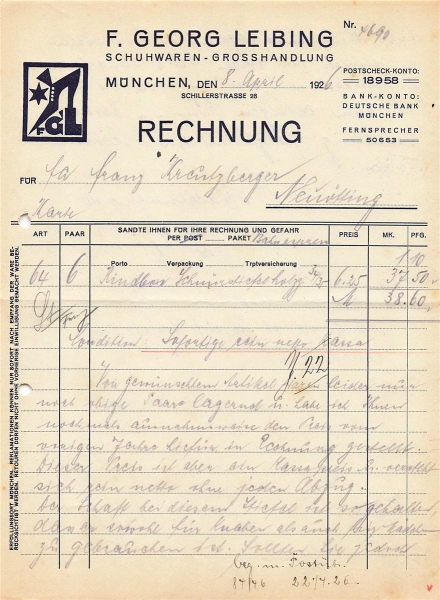 Nr. 4690
F. GEORG LEIBING
SCHUHWAREN-GROSSHANDLUNG
MÜNCHEN, DEN 8. April 1926
SCHILLERSTRASSE 28
POSTSCHECK-KONTO:
18958
BANK-KONTO:
DEUTSCHE BANK
MÜNCHEN
FERNSPRECHER
50653
FGL
RECHNUNG
FÜR Fa Franz Kreutzberger
Neuötting
ART PAAR SANDTE IHNEN FÜR IHRE RECHNUNG UND GEFAHR PREIS MK. PFG.
PER POST PAKET
Porto Verpackung Trptversicherung 1 10
64 6 Rindbox 6.25 37 50
M 38.60
Condition: Sofortige rein netto Kassa
7.22
Von gewünschtem Artikel leider nur
noch obige Paare lagernd u. habe ich Ihnen
nochmals ausnahmsweise den Preis vom
vorigen Jahre in Rechnung gestellt.
Dieser Preis ist aber ein Kassapreis u. versteht
sich rein netto ohne jeden Abzug.
Der Schaft bei diesem Stiefel ist so gehalten
daß er sowohl für Knaben als auch für Mädchen
zu gebrauchen ist. Sollten Sie jedoch
bez. m. Postsch.
22.4.26.
ERFÜLLUNGSORT MÜNCHEN. REKLAMATIONEN KÖNNEN NUR SOFORT NACH EMPFANG DER WARE BE-
RÜCKSICHTIGT WERDEN. RETOUREN DÜRFEN NICHT OHNE VORHERIGE EINWILLIGUNG GEMACHT WERDEN.